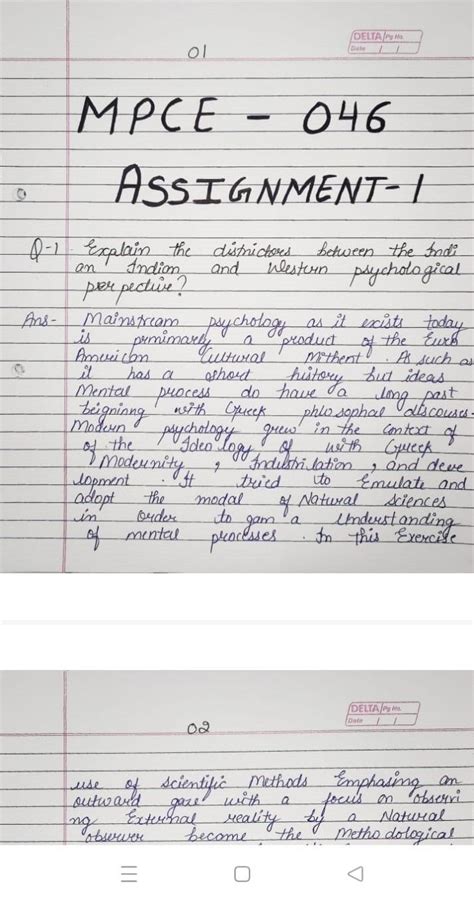 DELTA Pg No.
Date / /
01
MPCE - 046
ASSIGNMENT-1
Q-1 Explain the districhers between the Indi
an Indion and Western psychological
per pective?
Ans- Mainstream psychology as it exists today
is prmimarely a product of the Eurb
American Cultural Mithent. As such as
it has a ashord history but ideas
Mental process do have a long past
beigning with Greek phlo sophal discouses.
Modern psychology grew in the context of
of the Ideo logy of with Greek
Modernity, Industri lation, and deve
lopment. It tried to Emulate and
adopt the modal of Natural sciences
in order to gam a Understanding
of mental processes. In this Exercise
DELTA Pg No.
Date / /
02
use of scientific Methods Emphasing an
outward gaze with a focus on observi
ng External reality by a Natural
observer become the Metho dological